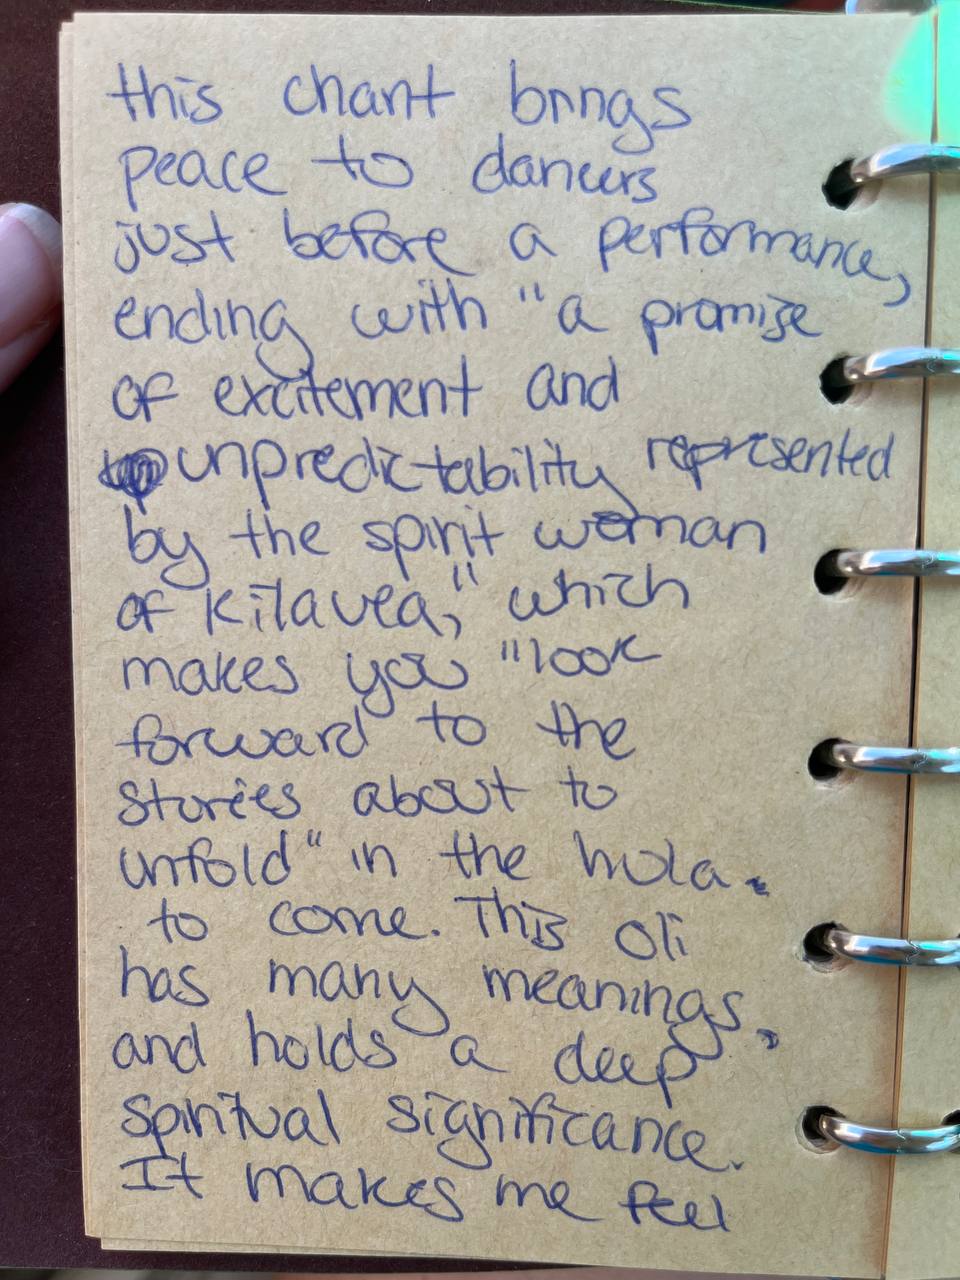 this chant brings
peace to dancers
just before a performance,
ending with "a promise
of excitement and
unpredictability represented
by the spirit woman
of Kilauea," which
makes you "look
forward to the
stories about to
unfold" in the hula.
to come. This oli
has many meanings,
and holds a deep
spiritual significance.
It makes me feel